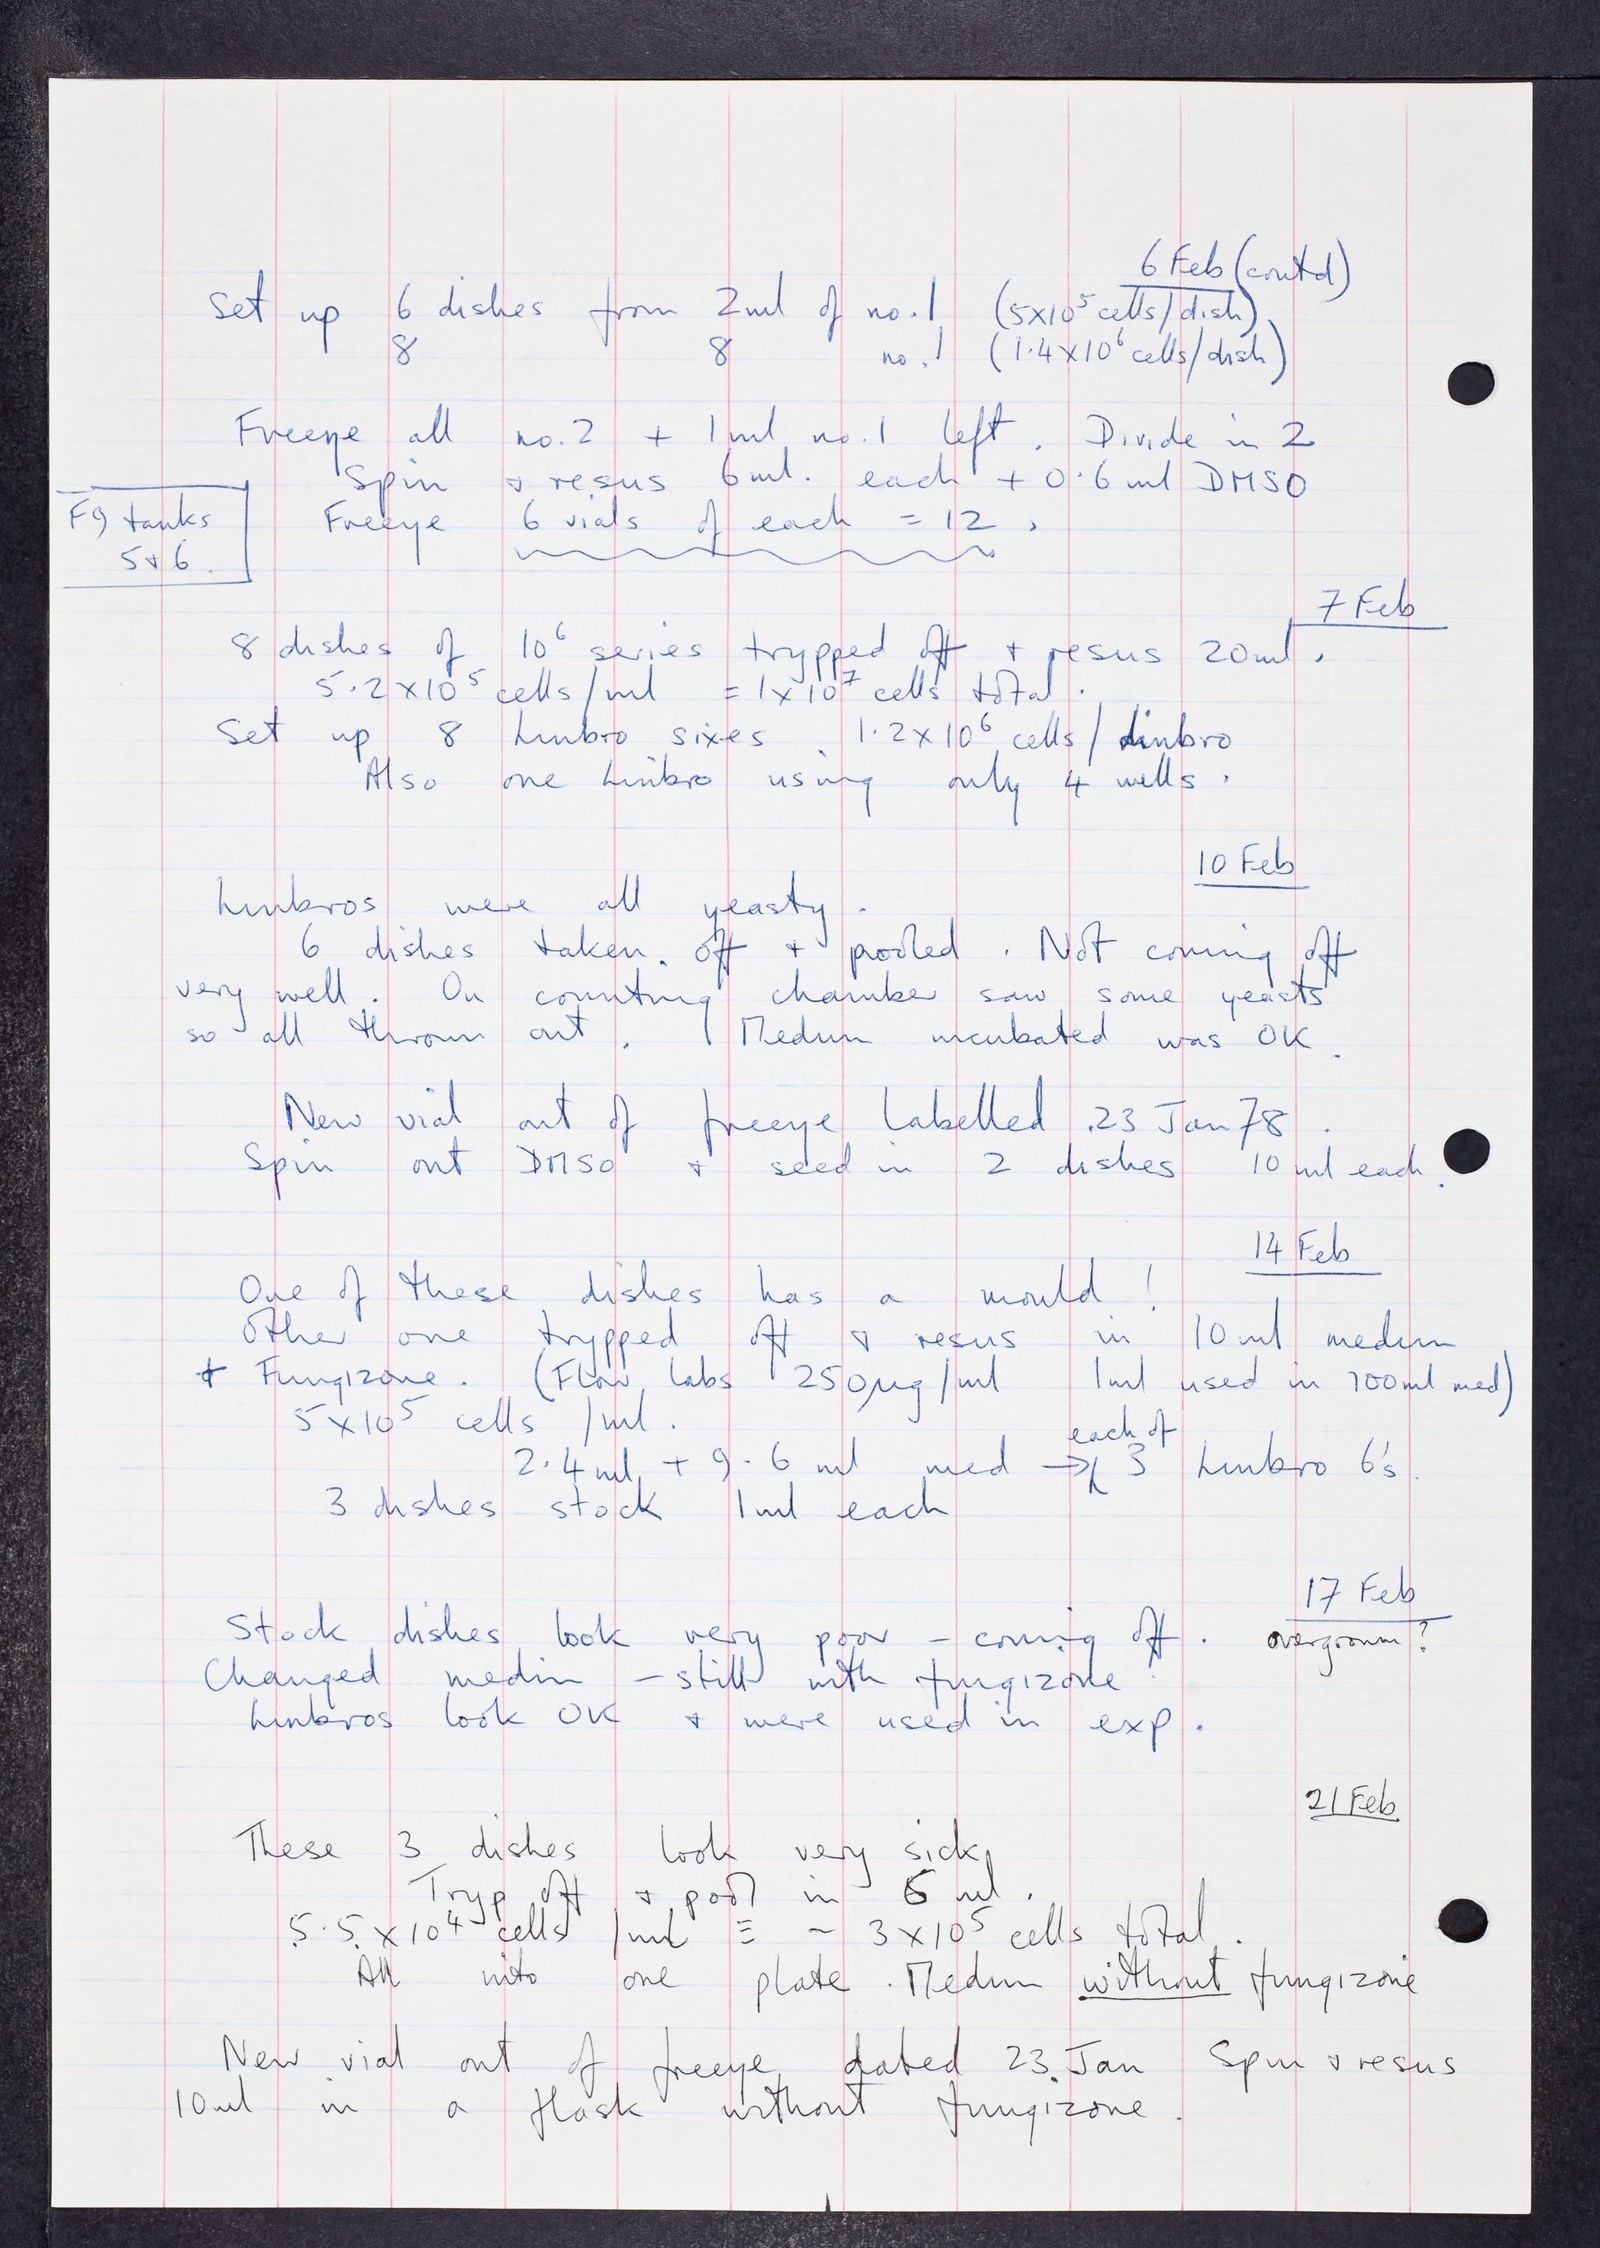 6 Feb (contd)
Set up 6 dishes from 2ml of no.1 (5x10⁵ cells/dish)
8 8 no.1 (1.4x10⁶ cells/dish)
Freeze all no.2 + 1ml no.1 left. Divide in 2
Spin + resus 6ml. each + 0.6ml DMSO
F9 tanks
5+6.
Freeze 6 vials of each = 12.
7 Feb
8 dishes of 10⁶ series trypped off + resus 20ml.
5.2x10⁵ cells/ml = 1x10⁷ cells total.
Set up 8 Linbro sixes. 1.2x10⁶ cells/linbro
Also one Linbro using only 4 wells.
10 Feb
Linbros were all yeasty.
6 dishes taken off + pooled. Not coming off
very well. On counting chamber saw some yeasts
so all thrown out. Medium incubated was OK.
New vial out of freeze labelled 23 Jan 78.
Spin out DMSO + seed in 2 dishes 10ml each.
14 Feb
One of these dishes has a mould!
Other one trypped off + resus in 10ml medium
+ Fungizone. (Flow Labs 250µg/ml 1ml used in 100ml med)
5x10⁵ cells /ml.
each of
2.4ml + 9.6 ml med → 3 Linbro 6's.
3 dishes stock 1ml each
17 Feb
Stock dishes look very poor – coming off. overgrown?
Changed medium – still with fungizone
Linbros look OK + were used in exp.
21 Feb
These 3 dishes look very sick
Tryp off + pool in 6 ml.
5.5x10⁴ cells /ml ≡ ~ 3x10⁵ cells total.
All into one plate. Medium without fungizone
New vial out of freeze dated 23 Jan Spin + resus
10ml in a flask without fungizone.